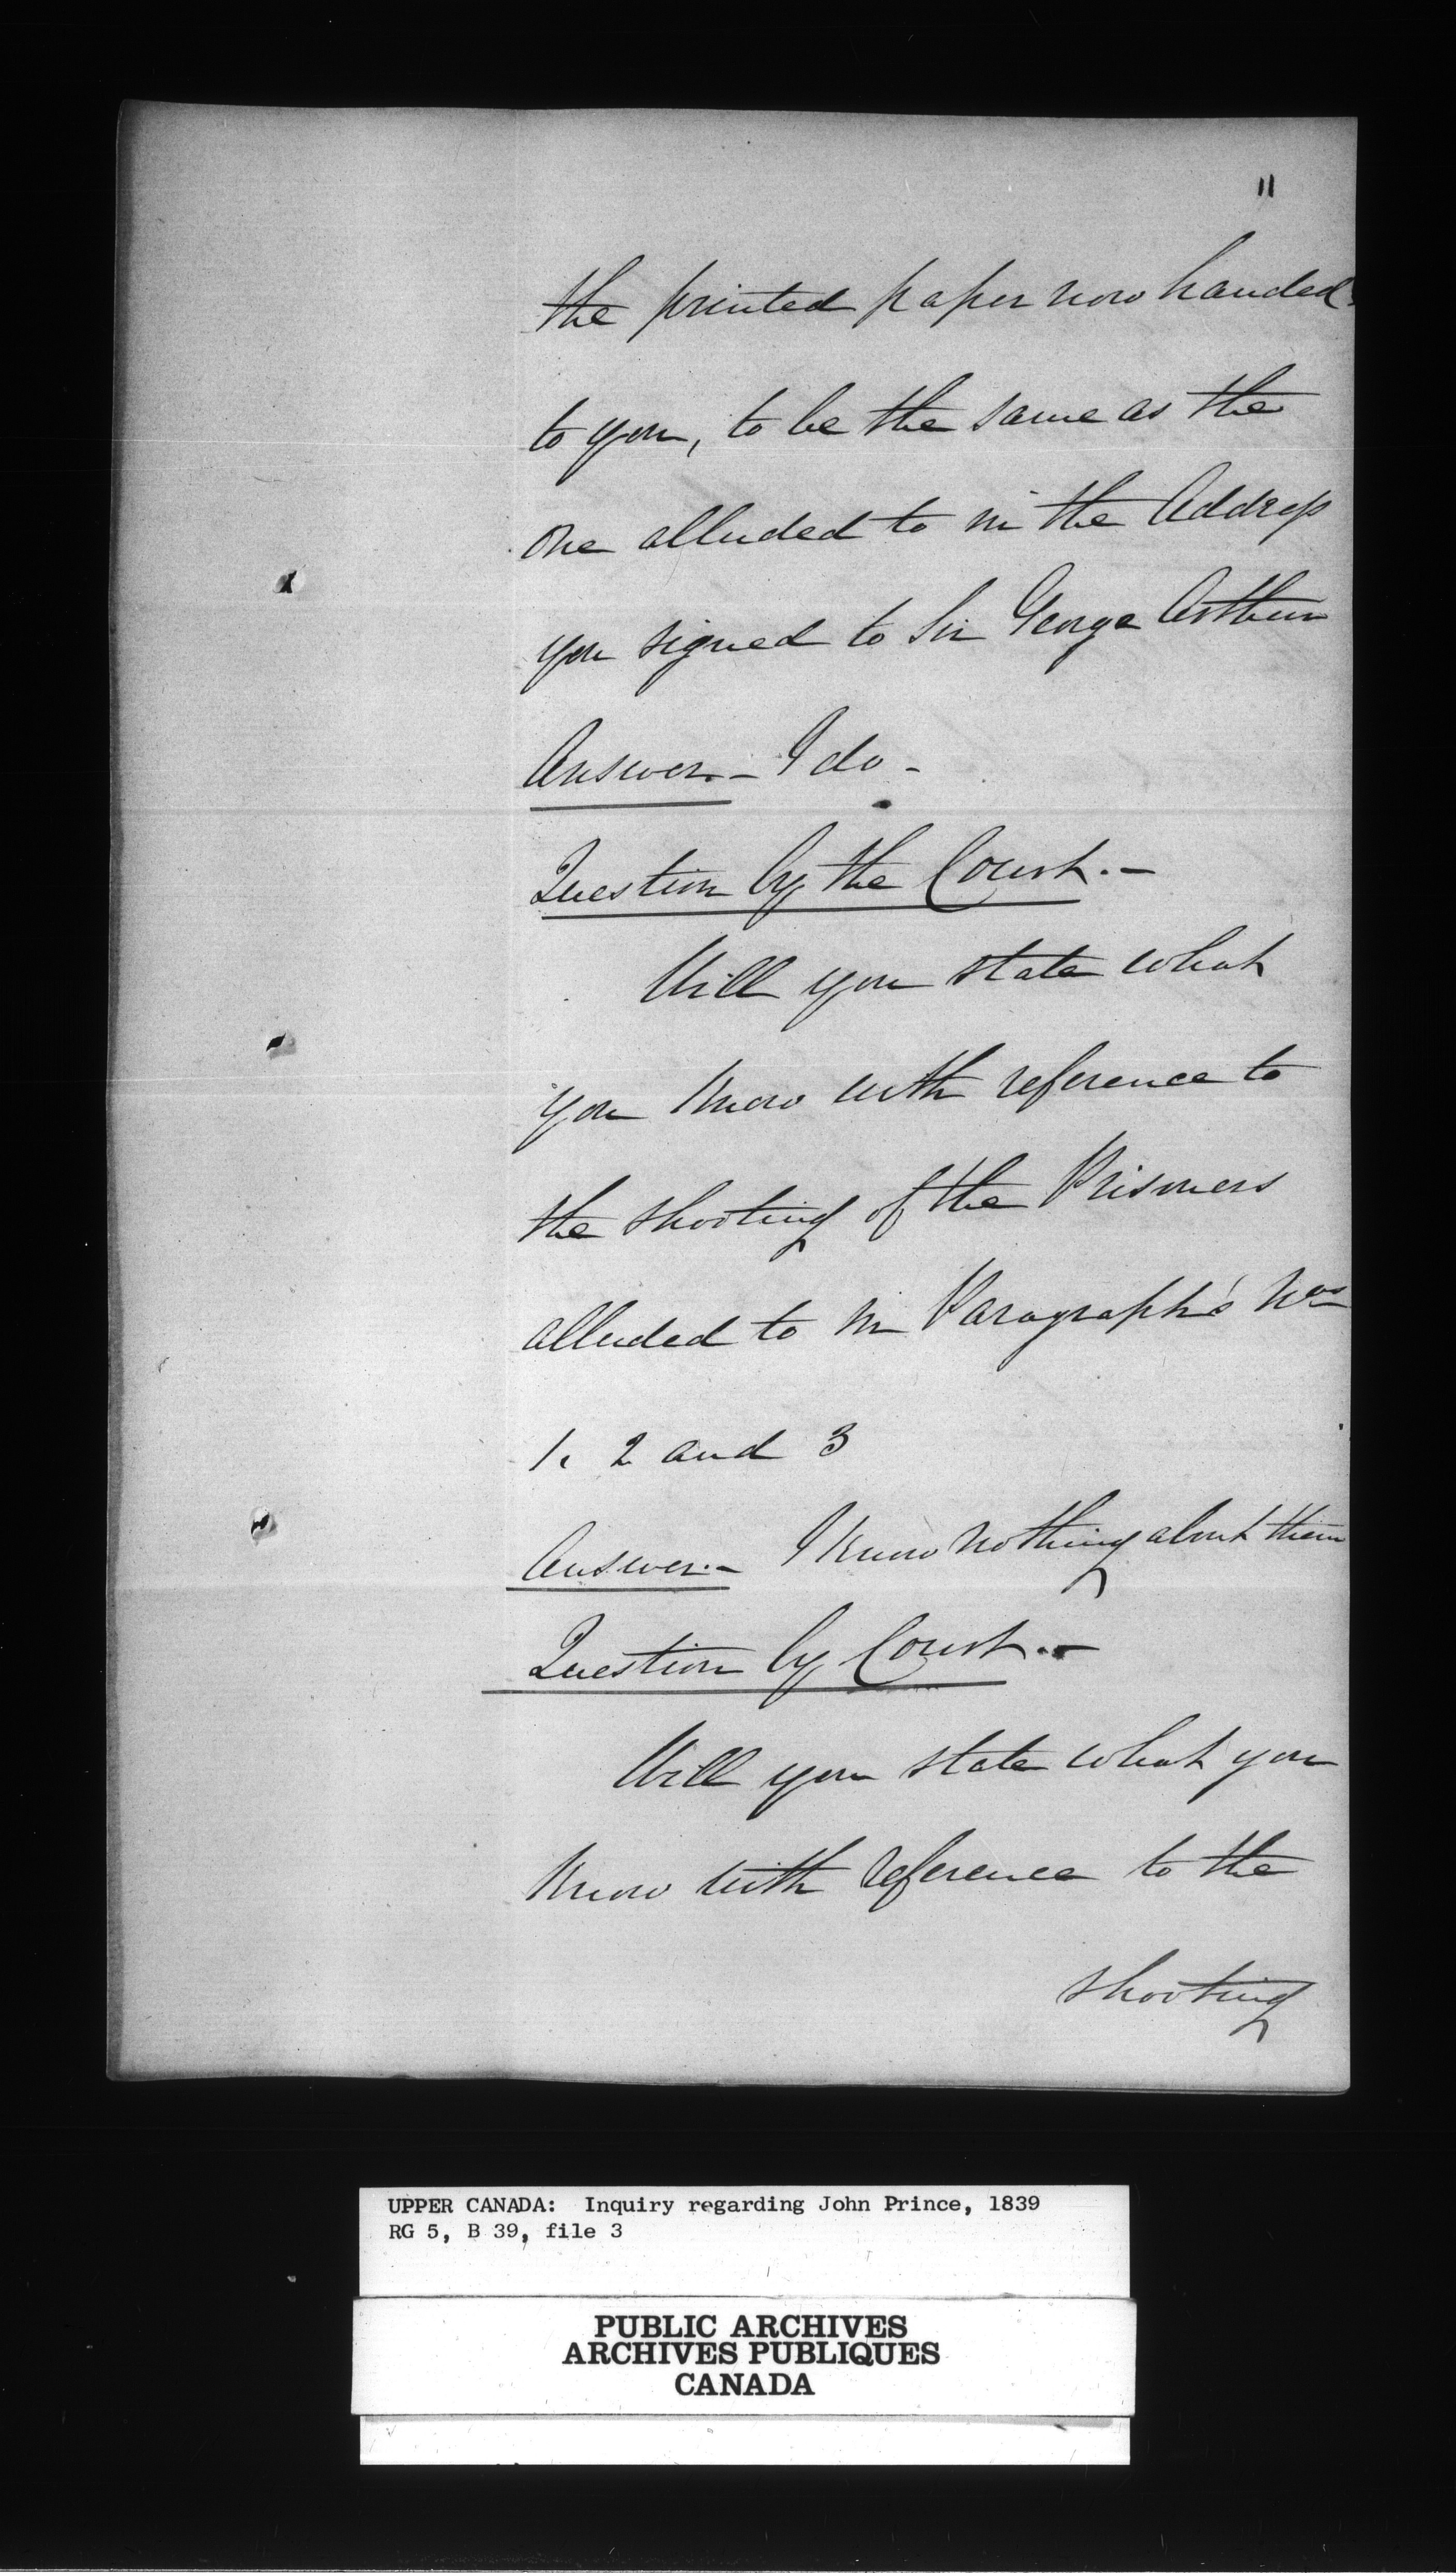 11
the printed paper now handed
to you, to be the same as the
one alluded to in the Address
you signed to Sir George Arthur
Answer.- I do -
Question by the Court.-
Will you state what
you know with reference to
the shooting of the Prisoners
alluded to in Paragraph's Nos
1. 2 and 3
Answer.- I know nothing about them
Question by Court.-
Will you state what you
know with reference to the
shooting
UPPER CANADA: Inquiry regarding John Prince, 1839
RG 5, B 39, file 3
PUBLIC ARCHIVES
ARCHIVES PUBLIQUES
CANADA